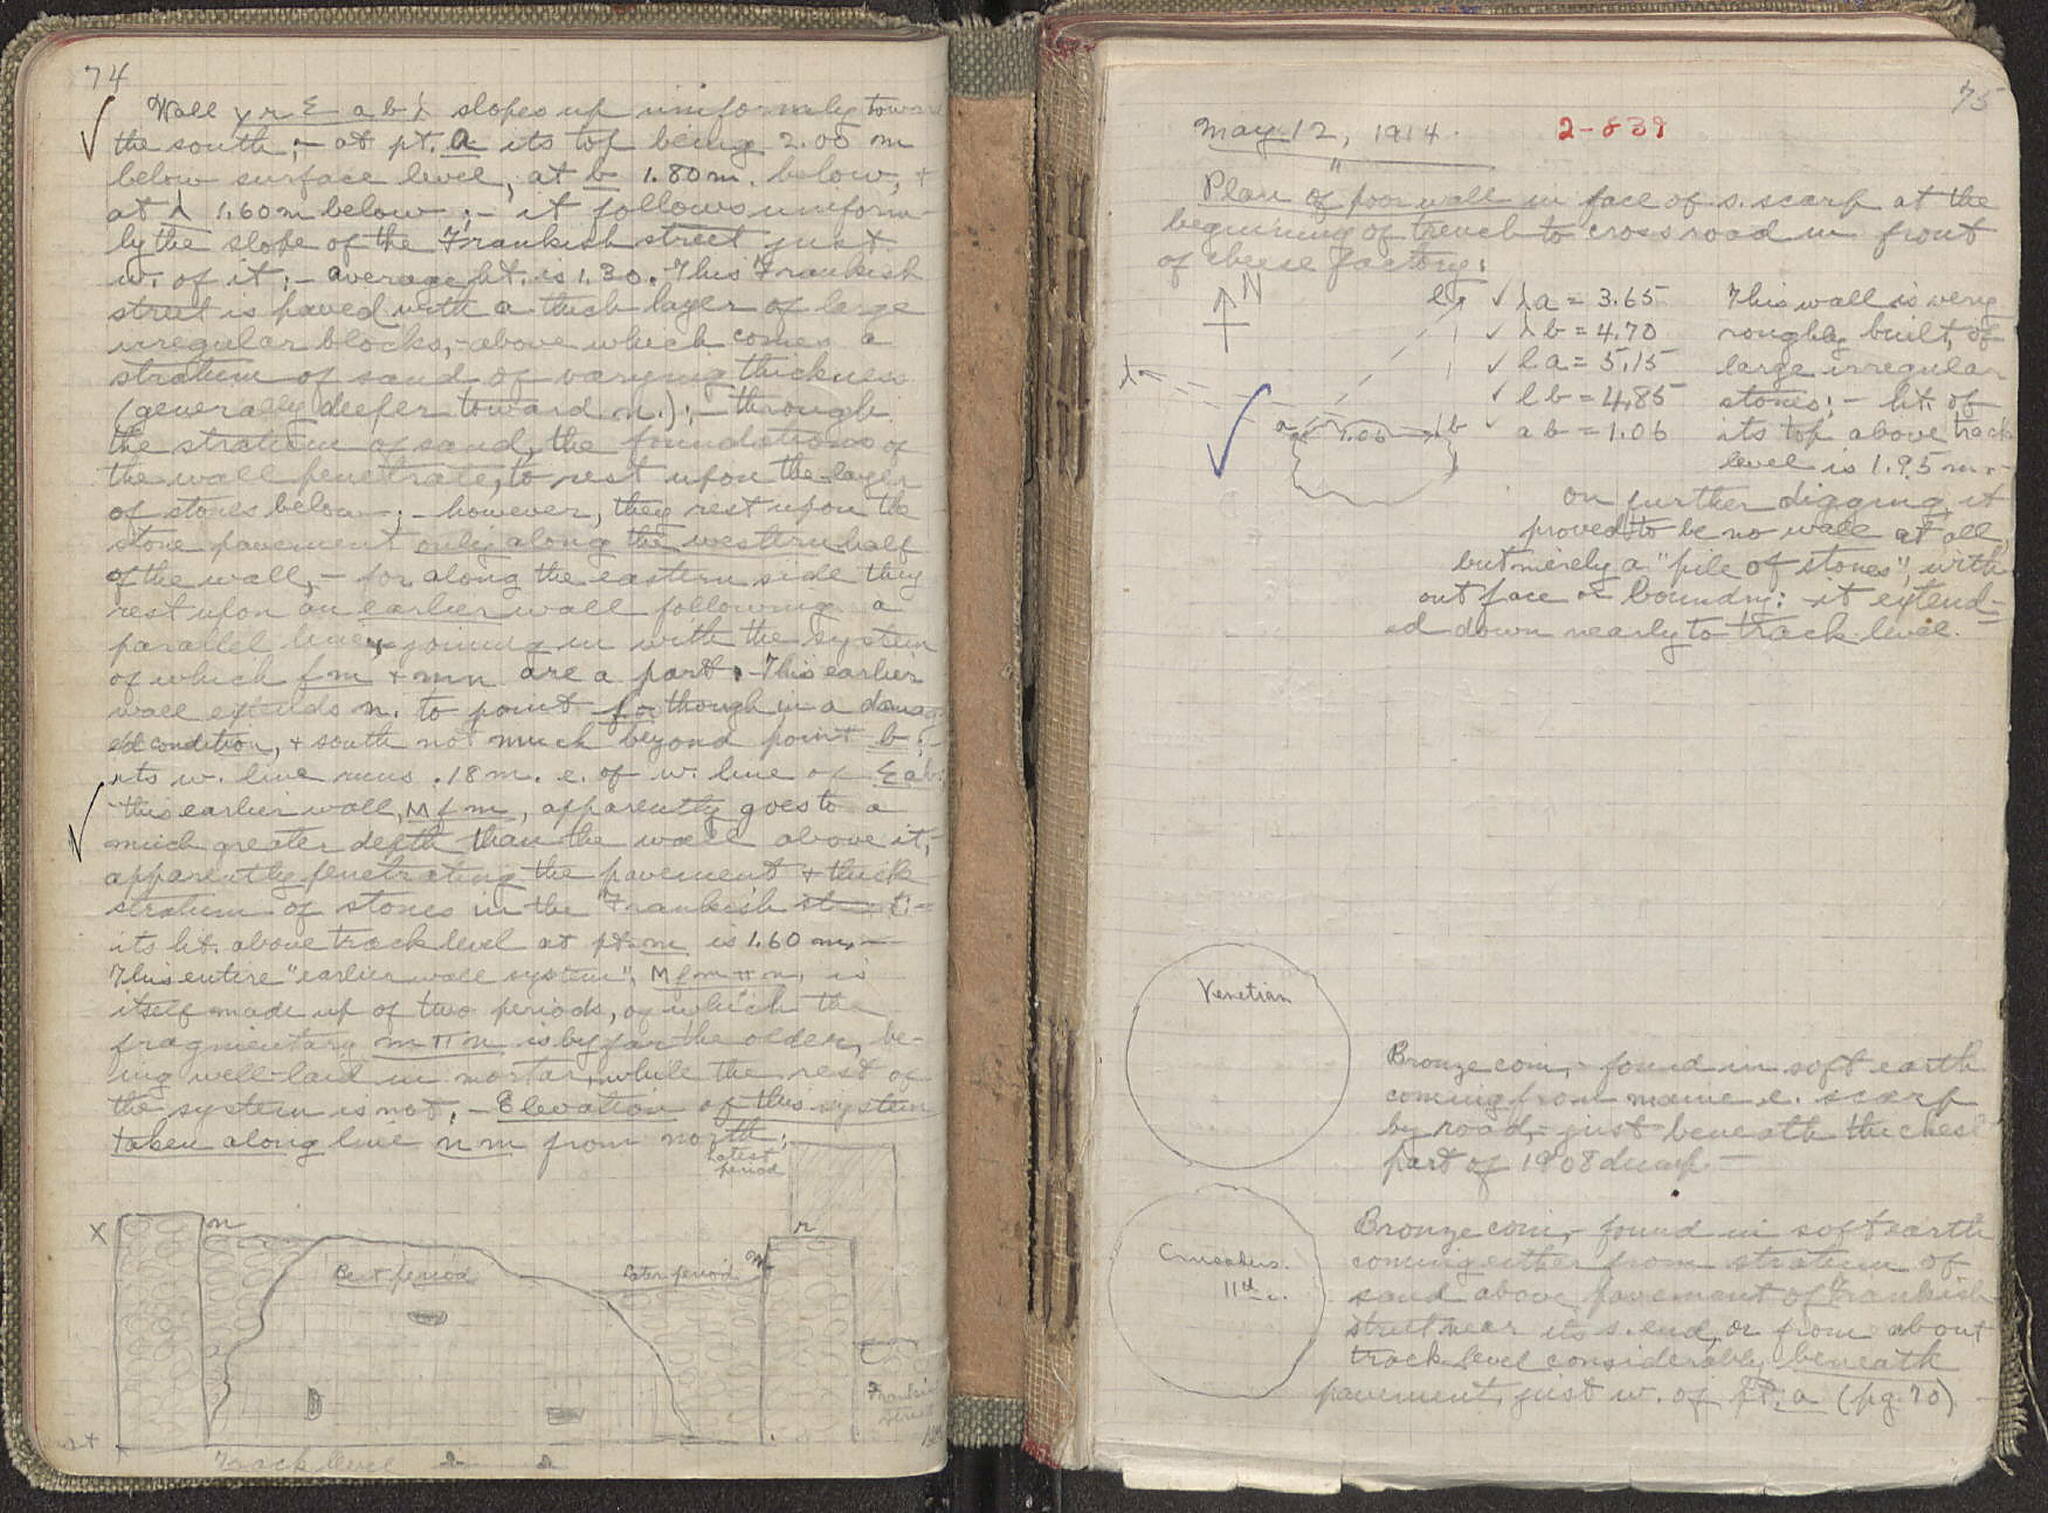 74
Wall y r Σ a b λ slopes up uniformly toward
the south; – at pt. a its top being 2.05 m
below surface level, at b 1.80 m. below, +
at λ 1.60 m below; – it follows uniform-
ly the slope of the Frankish street just
w. of it; – average ht. is 1.30. This Frankish
street is paved with a thick layer of large
irregular blocks, – above which comes a
stratum of sand of varying thickness
(generally deeper toward n.); – through
the stratum of sand, the foundations of
the wall penetrate, to rest upon the layer
of stones below; – however, they rest upon the
stone pavement only along the western half
of the wall, – for along the eastern side they
rest upon an earlier wall following a
parallel line, joining in with the system
of which fm + mn are a part. – This earlier
wall extends n. to point f, though in a damag-
ed condition, + south not much beyond point b; –
its w. line runs .18 m. e. of w. line of Σab;
this earlier wall, Mfm, apparently goes to a
much greater depth than the wall above it, –
apparently penetrating the pavement + thick
stratum of stones in the Frankish street: –
its ht. above track level at pt. m is 1.60 m. –
This entire "earlier wall system", Mfmπn, is
itself made up of two periods, of which the
fragmentary mπn is by far the older, be-
ing well-laid in mortar, while the rest of
the system is not. – Elevation of this system
taken along line nm from north:
Latest
period
x
n
r
m
Best period
Later period
Frankish
street
Track level
75
May 12, 1914.
2-839
Plan of poor wall in face of s. scarp at the
beginning of trench to cross road in front
of cheese factory:
N
l
λ
a
1.06
b
λa = 3.65
λb = 4.70
la = 5.15
lb = 4.85
ab = 1.06
This wall is very
roughly built, of
large irregular
stones; – ht. of
its top above track
level is 1.95 m. –
On further digging, it
proved to be no wall at all,
but merely a "pile of stones", with
out face or boundry: – it extend-
ed down nearly to track level.
Venetian
Bronze coin, – found in soft earth
coming from e. scarp
by road, – just beneath
part of 1908 dump. –
Crusaders.
11th c.
Bronze coin, – found in soft earth
coming either from stratum of
sand above pavement of Frankish
street near its s. end, or from about
track level considerably beneath
pavement, just w. of pt. a (pg. 70)